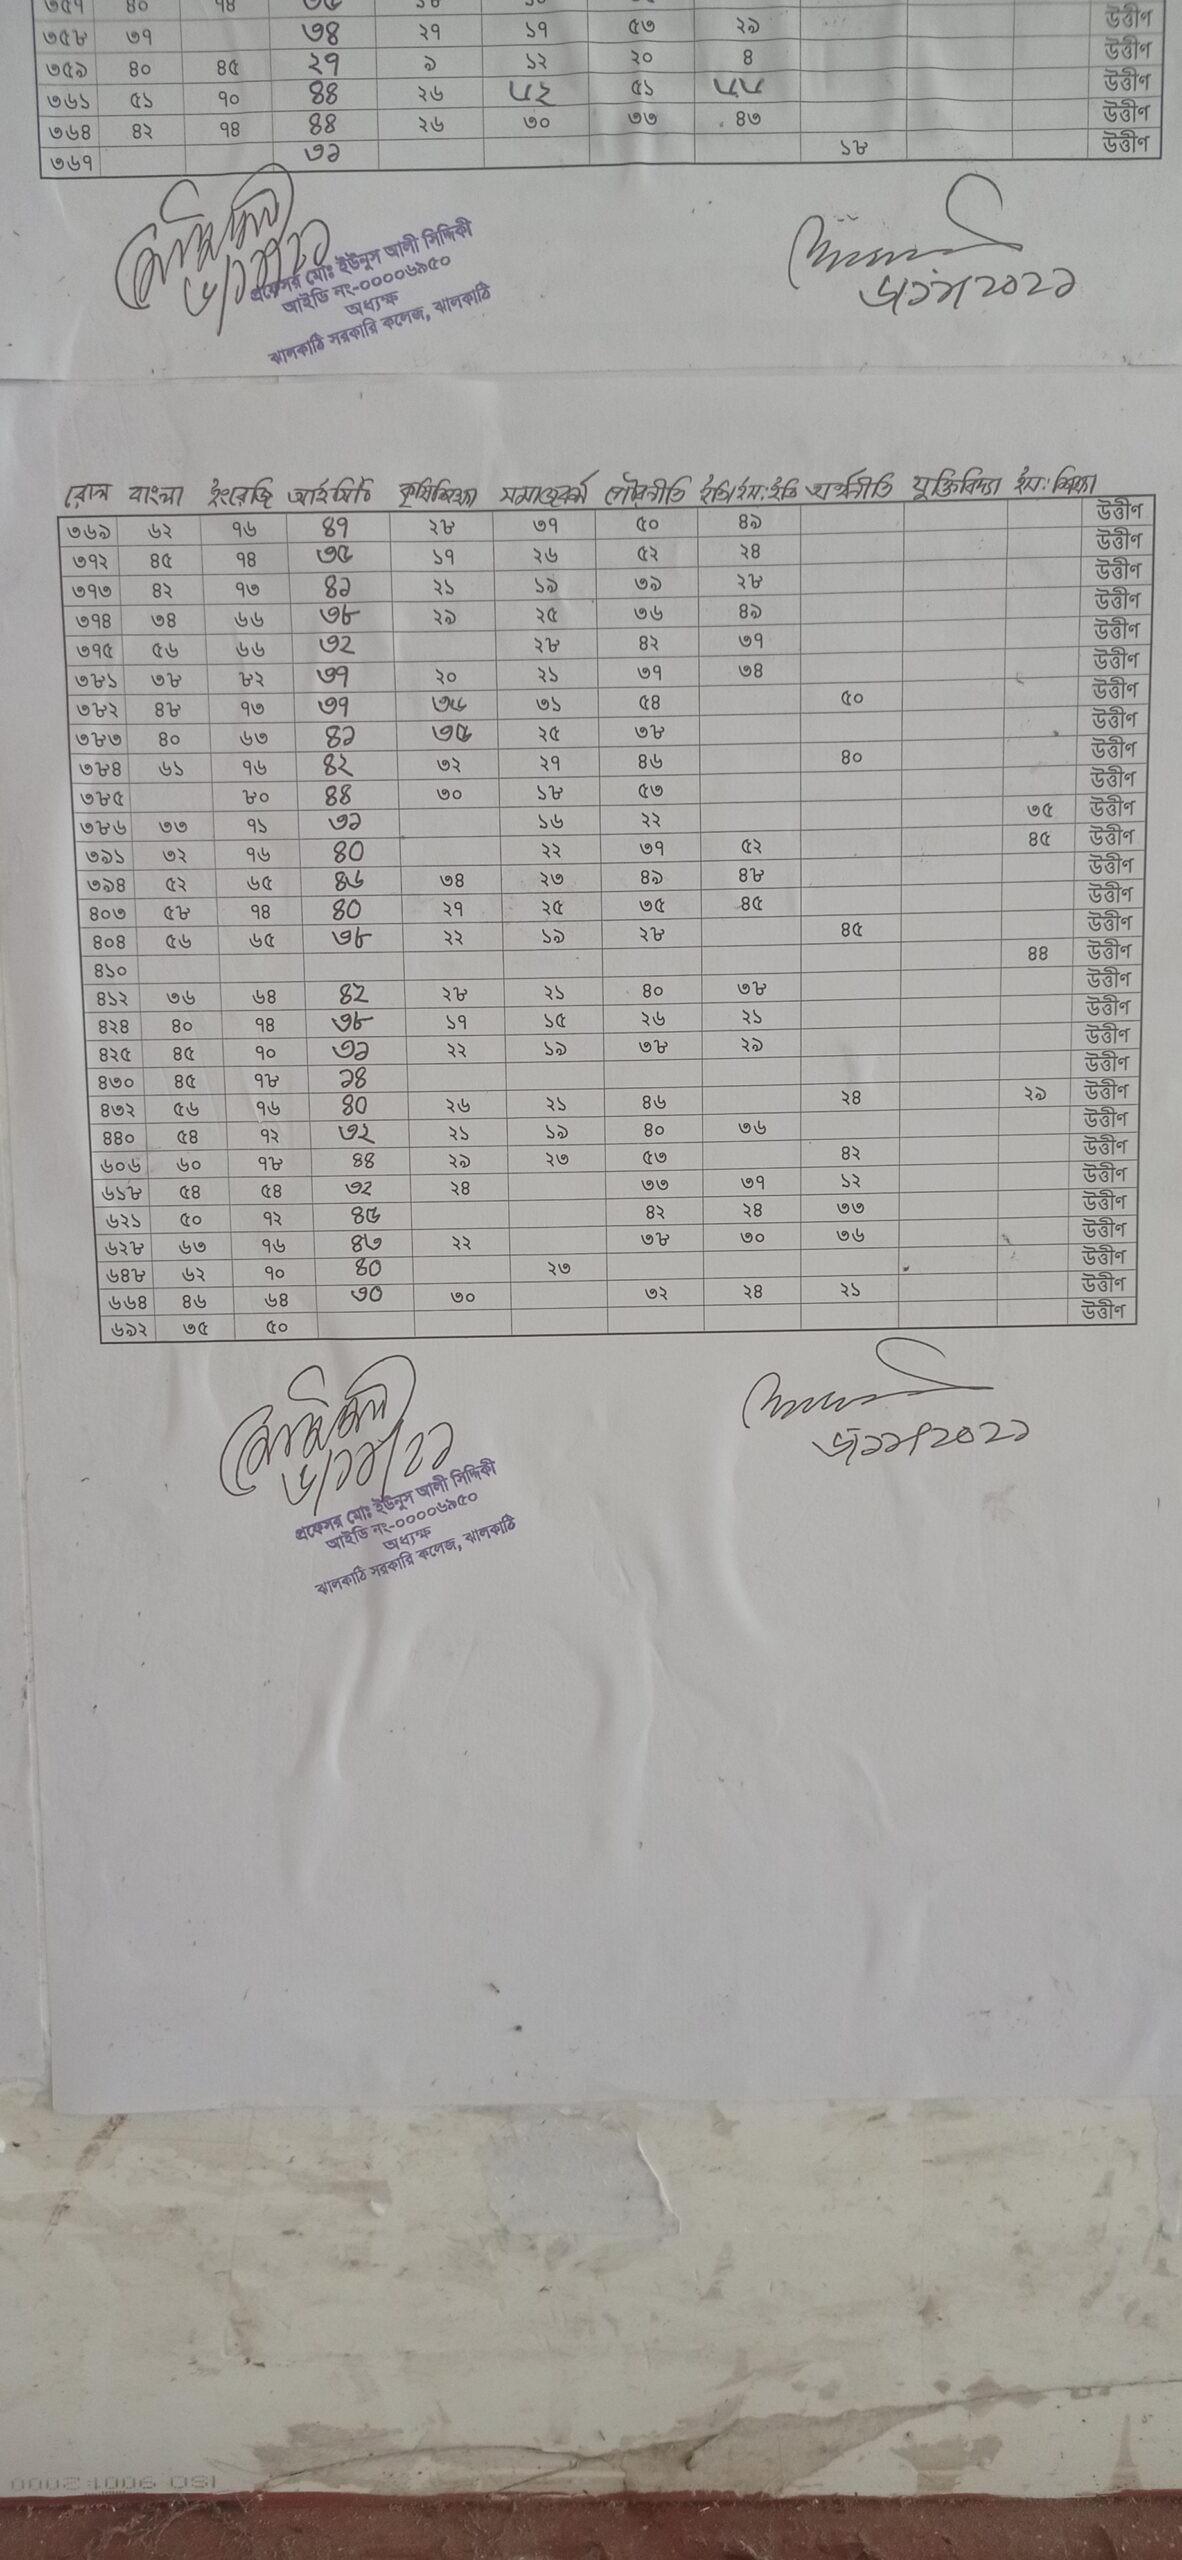 ৩৫৭ ৪০ ৭৪ ৩৫ ১৮
৩৫৮ ৩৭ ৩৪ ২৭ ১৭ ৫৩ ২৯ উত্তীর্ণ
৩৫৯ ৪০ ৪৫ ২৭ ৯ ১২ ২০ ৪ উত্তীর্ণ
৩৬১ ৫১ ৭০ ৪৪ ২৬ ৫১ উত্তীর্ণ
৩৬৪ ৪২ ৭৪ ৪৪ ২৬ ৩০ ৩৩ ৪৩ উত্তীর্ণ
৩৬৭ ৩১ ১৮ উত্তীর্ণ
প্রফেসর মোঃ ইউনুস আলী সিদ্দিকী
আইডি নং-০০০০৬৯৫০
অধ্যক্ষ
ঝালকাঠি সরকারি কলেজ, ঝালকাঠি
৬/১১/২০২১
রোল বাংলা ইংরেজি আইসিটি কৃষিশিক্ষা সমাজকর্ম পৌরনীতি ইতি/ইস:ইতি অর্থনীতি যুক্তিবিদ্যা ইস: শিক্ষা
৩৬৯ ৬২ ৭৬ ৪৭ ২৮ ৩৭ ৫০ ৪৯ উত্তীর্ণ
৩৭২ ৪৫ ৭৪ ৩৫ ১৭ ২৬ ৫২ ২৪ উত্তীর্ণ
৩৭৩ ৪২ ৭৩ ৪১ ২১ ১৯ ৩৯ ২৮ উত্তীর্ণ
৩৭৪ ৩৪ ৬৬ ৩৮ ২৯ ২৫ ৩৬ ৪৯ উত্তীর্ণ
৩৭৫ ৫৬ ৬৬ ৩২ ২৮ ৪২ ৩৭ উত্তীর্ণ
৩৮১ ৩৮ ৮২ ৩৭ ২০ ২১ ৩৭ ৩৪ উত্তীর্ণ
৩৮২ ৪৮ ৭৩ ৩৭ ৩৫ ৩১ ৫৪ ৫০ উত্তীর্ণ
৩৮৩ ৪০ ৬৩ ৪১ ৩৫ ২৫ ৩৮ উত্তীর্ণ
৩৮৪ ৬১ ৭৬ ৪২ ৩২ ২৭ ৪৬ ৪০ উত্তীর্ণ
৩৮৫ ৮০ ৪৪ ৩০ ১৮ ৫৩ উত্তীর্ণ
৩৮৬ ৩৩ ৭১ ৩১ ১৬ ২২ ৩৫ উত্তীর্ণ
৩৯১ ৩২ ৭৬ ৪০ ২২ ৩৭ ৫২ ৪৫ উত্তীর্ণ
৩৯৪ ৫২ ৬৫ ৪৬ ৩৪ ২৩ ৪৯ ৪৮ উত্তীর্ণ
৪০৩ ৫৮ ৭৪ ৪০ ২৭ ২৫ ৩৫ ৪৫ উত্তীর্ণ
৪০৪ ৫৬ ৬৫ ৩৮ ২২ ১৯ ২৮ ৪৫ উত্তীর্ণ
৪১০ ৪৪ উত্তীর্ণ
৪১২ ৩৬ ৬৪ ৪২ ২৮ ২১ ৪০ ৩৮ উত্তীর্ণ
৪২৪ ৪০ ৭৪ ৩৮ ১৭ ১৫ ২৬ ২১ উত্তীর্ণ
৪২৫ ৪৫ ৭০ ৩১ ২২ ১৯ ৩৮ ২৯ উত্তীর্ণ
৪৩০ ৪৫ ৭৮ ১৪ উত্তীর্ণ
৪৩২ ৫৬ ৭৬ ৪০ ২৬ ২১ ৪৬ ২৪ ২৯ উত্তীর্ণ
৪৪০ ৫৪ ৭২ ৩২ ২১ ১৯ ৪০ ৩৬ উত্তীর্ণ
৬০৬ ৬০ ৭৮ ৪৪ ২৯ ২৩ ৫৩ ৪২ উত্তীর্ণ
৬১৮ ৫৪ ৫৪ ৩২ ২৪ ৩৩ ৩৭ ১২ উত্তীর্ণ
৬২১ ৫০ ৭২ ৪৫ ৪২ ২৪ ৩৩ উত্তীর্ণ
৬২৮ ৬৩ ৭৬ ৪৩ ২২ ৩৮ ৩০ ৩৬ উত্তীর্ণ
৬৪৮ ৬২ ৭০ ৪০ ২৩ উত্তীর্ণ
৬৬৪ ৪৬ ৬৪ ৩০ ৩০ ৩২ ২৪ ২১ উত্তীর্ণ
৬৯২ ৩৫ ৫০ উত্তীর্ণ
প্রফেসর মোঃ ইউনুস আলী সিদ্দিকী
আইডি নং-০০০০৬৯৫০
অধ্যক্ষ
ঝালকাঠি সরকারি কলেজ, ঝালকাঠি